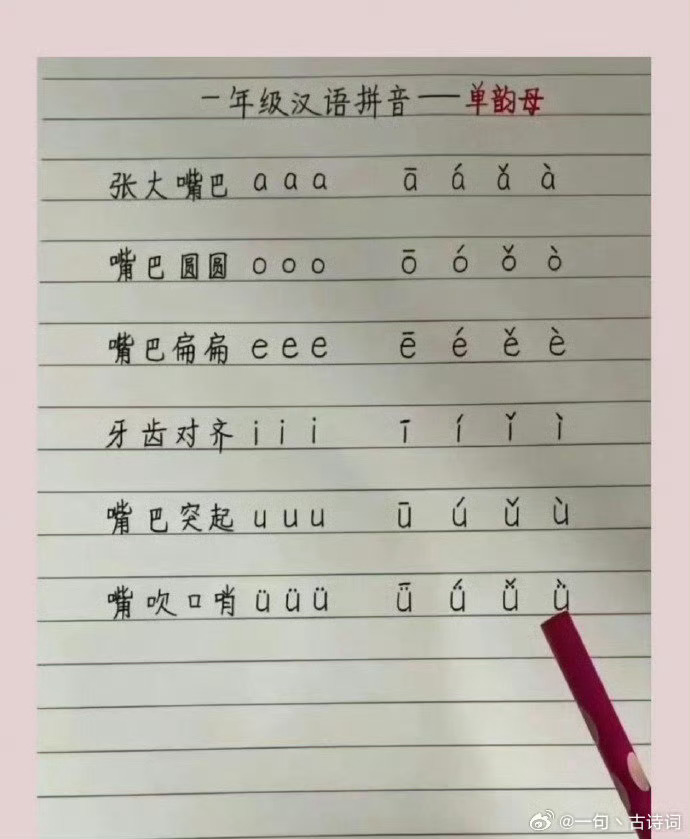 一年级汉语拼音——单韵母
张大嘴巴 a a a ā á ǎ à
嘴巴圆圆 o o o ō ó ǒ ò
嘴巴扁扁 e e e ē é ě è
牙齿对齐 i i i ī í ǐ ì
嘴巴突起 u u u ū ú ǔ ù
嘴吹口哨 ü ü ü ǖ ǘ ǚ ǜ
@一句丶古诗词